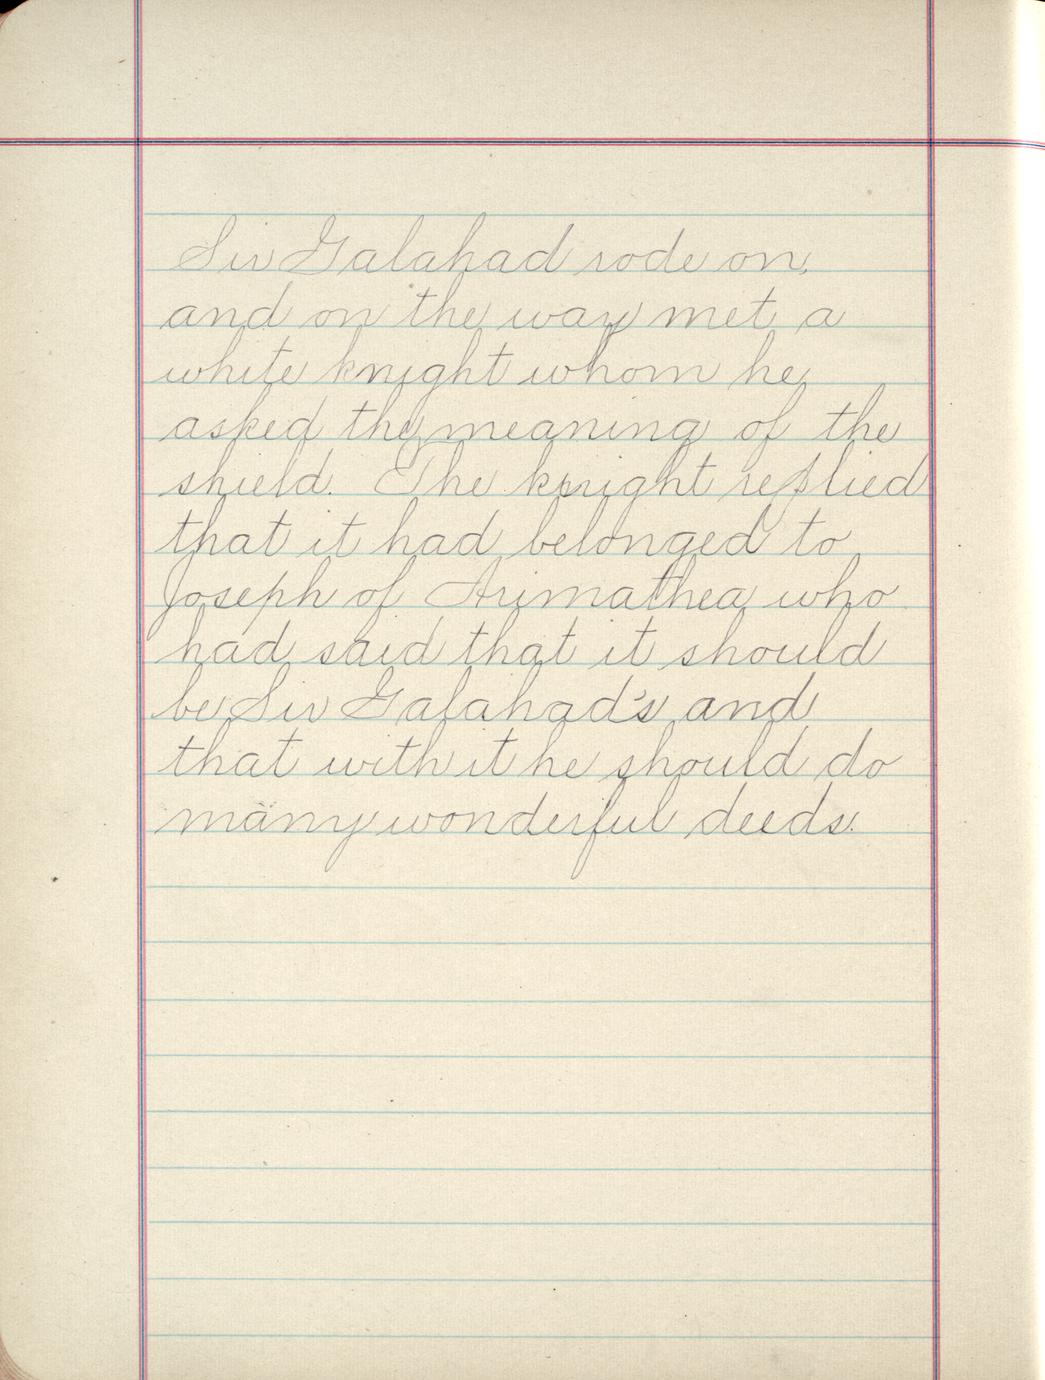 Sir Galahad rode on,
and on the way met a
white knight whom he
asked the meaning of the
shield. The knight replied
that it had belonged to
Joseph of Arimathea who
had said that it should
be Sir Galahad's and
that with it he should do
many wonderful deeds.